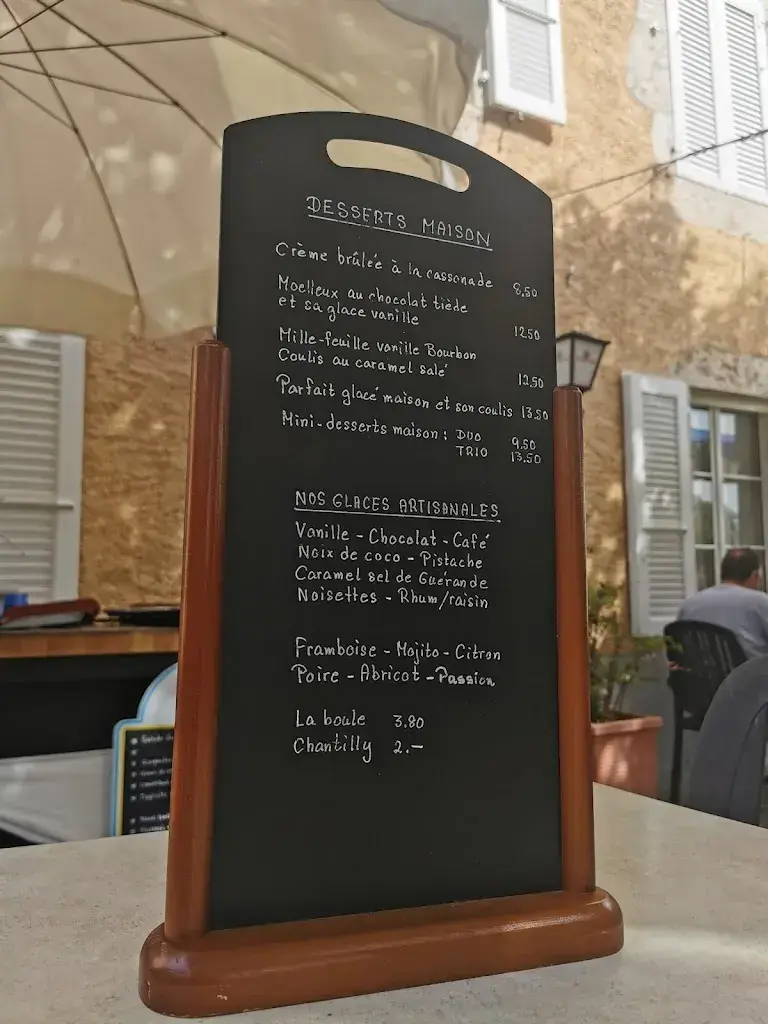 DESSERTS MAISON
Crème brûlée à la cassonade 8,50
Moelleux au chocolat tiède
et sa glace vanille 12.50
Mille-feuille vanille Bourbon
Coulis au caramel salé 12,50
Parfait glacé maison et son coulis 13.50
Mini-desserts maison : DUO 9.50
TRIO 13.50
NOS GLACES ARTISANALES
Vanille - Chocolat - Café
Noix de coco - Pistache
Caramel sel de Guérande
Noisettes - Rhum/raisin
Framboise - Mojito - Citron
Poire - Abricot - Passion
La boule 3.80
Chantilly 2.-